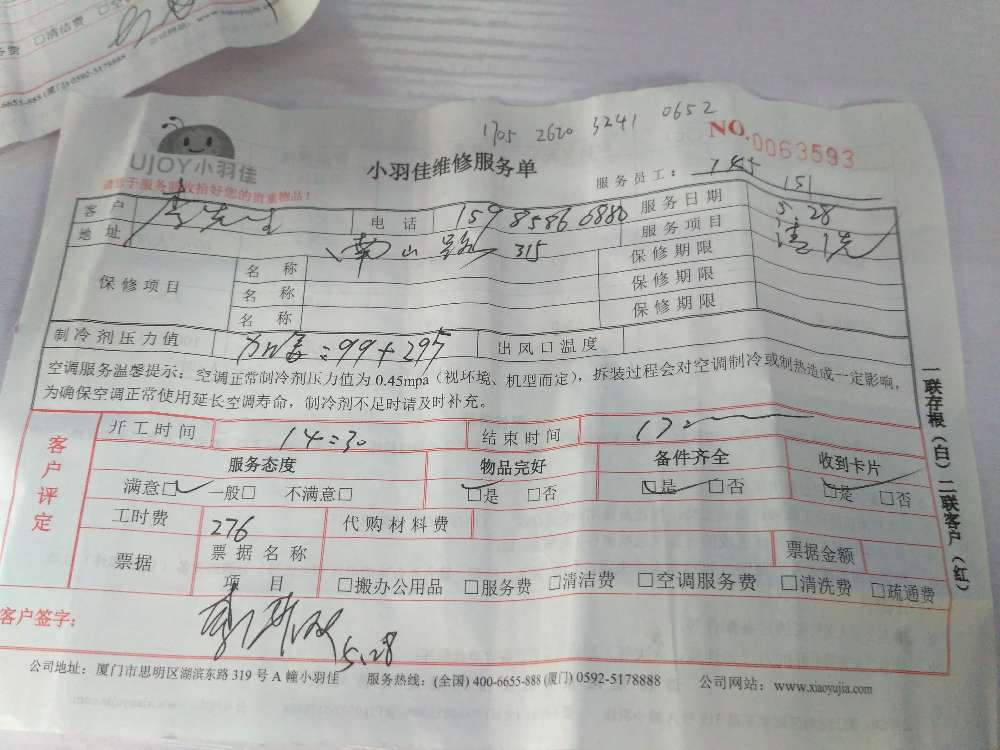 务费 □清洁费 □空
www.xiaoyujia.com
6655-888 (厦门) 0592-5178888
1705 2620 3241 0652
NO.0063593
UJOY小羽佳
小羽佳维修服务单
请您于服务前收拾好您的贵重物品！
服务员工： 151
客户 李先生 电话 15985866880 服务日期 5.28
地址 南山路 315 服务项目 清洗
保修项目 名称 保修期限
名称 保修期限
名称 保修期限
制冷剂压力值 加香=99+297 出风口温度
空调服务温馨提示：空调正常制冷剂压力值为 0.45mpa（视环境、机型而定），拆装过程会对空调制冷或制热造成一定影响，
为确保空调正常使用延长空调寿命，制冷剂不足时请及时补充。
客户评定
开工时间 14:30 结束时间 17
服务态度 物品完好 备件齐全 收到卡片
满意□ 一般□ 不满意□ □是 □否 □是 □否 □是 □否
工时费 276 代购材料费
票据 票据名称 票据金额
项目 □搬办公用品 □服务费 □清洁费 □空调服务费 □清洗费 □疏通费
客户签字： 5.28
一联存根（白）二联客户（红）
公司地址：厦门市思明区湖滨东路 319 号 A 幢小羽佳 服务热线：(全国) 400-6655-888 (厦门) 0592-5178888 公司网站：www.xiaoyujia.com